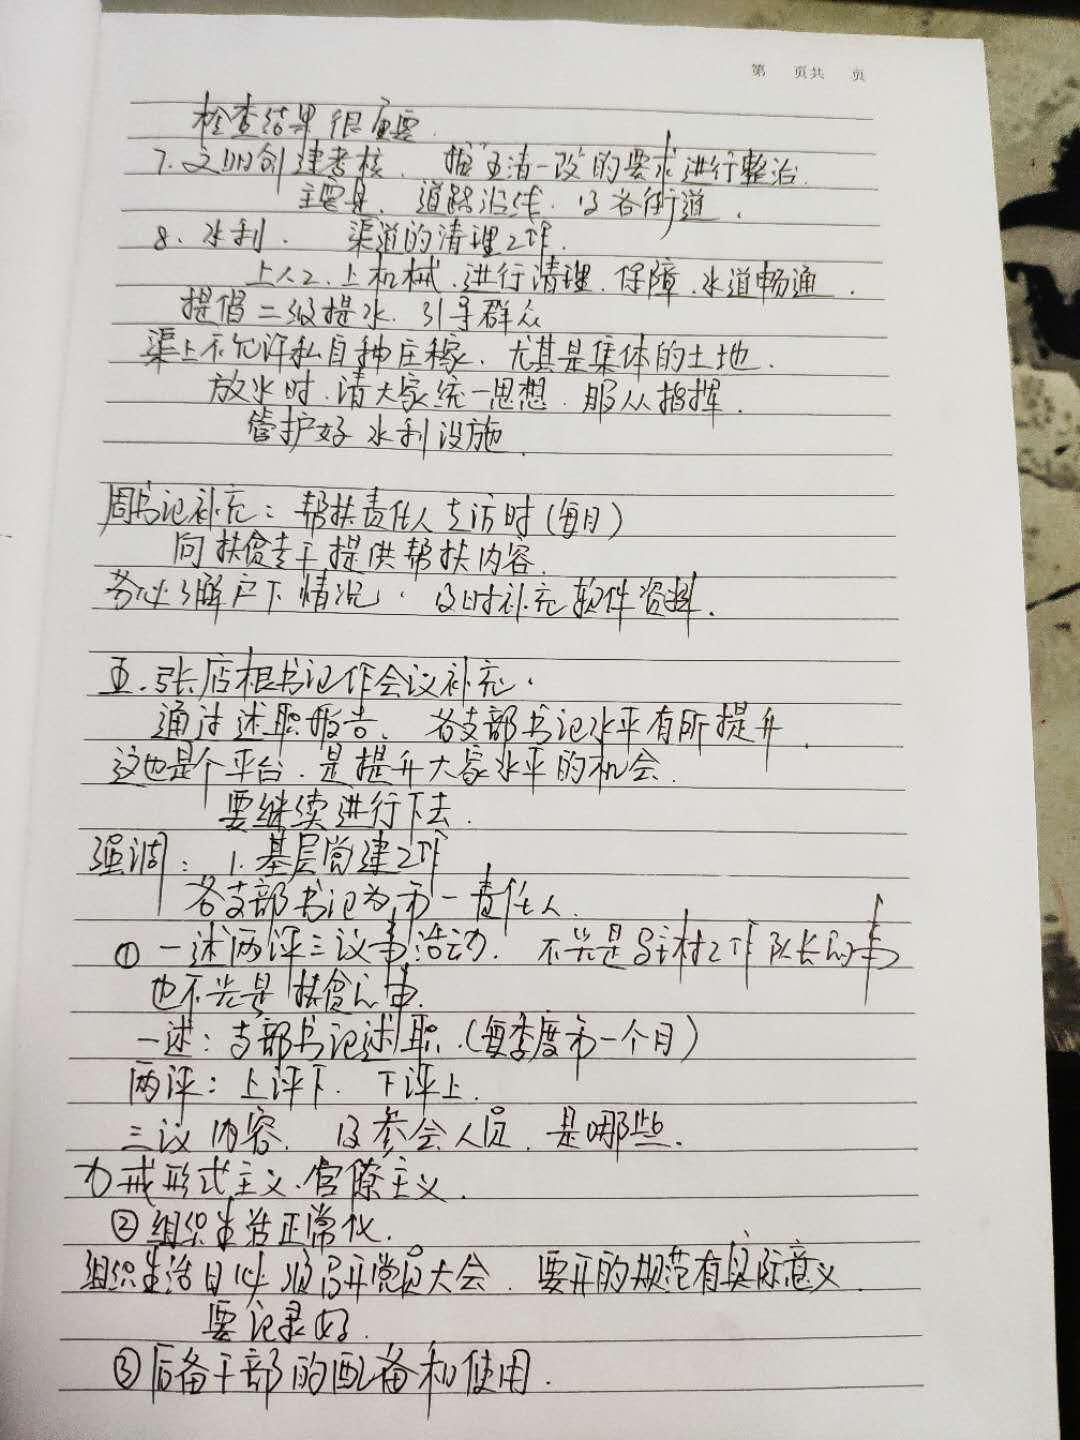 第 页共 页
检查结果很重要.
7.文明创建考核. 按"五清一改"的要求进行整治.
主要是、道路沿线.及各街道.
8、水利. 渠道的清理工作.
上人工.上机械.进行清理.保障.水道畅通.
提倡二级提水.引导群众
渠上不允许私自种庄稼.尤其是集体的土地.
放水时.请大家统一思想.服从指挥.
管护好水利设施.
周书记补充: 帮扶责任人走访时(每月)
向扶贫专干提供帮扶内容.
务必了解户下情况.及时补充软件资料.
五.张店根书记作会议补充.
通过述职报告、各支部书记水平有所提升.
这也是个平台.是提升大家水平的机会.
要继续进行下去.
强调: 1.基层党建工作
各支部书记为第一责任人.
①一述两评三议事活动. 不光是驻村工作队长的事
也不光是扶贫的事.
一述: 支部书记述职.(每季度第一个月)
两评: 上评下. 下评上.
三议内容. 及参会人员.是哪些.
力戒形式主义.官僚主义.
②组织生活正常化.
组织生活日必须召开党员大会.要开的规范有实际意义.
要记录好.
③后备干部的配备和使用.